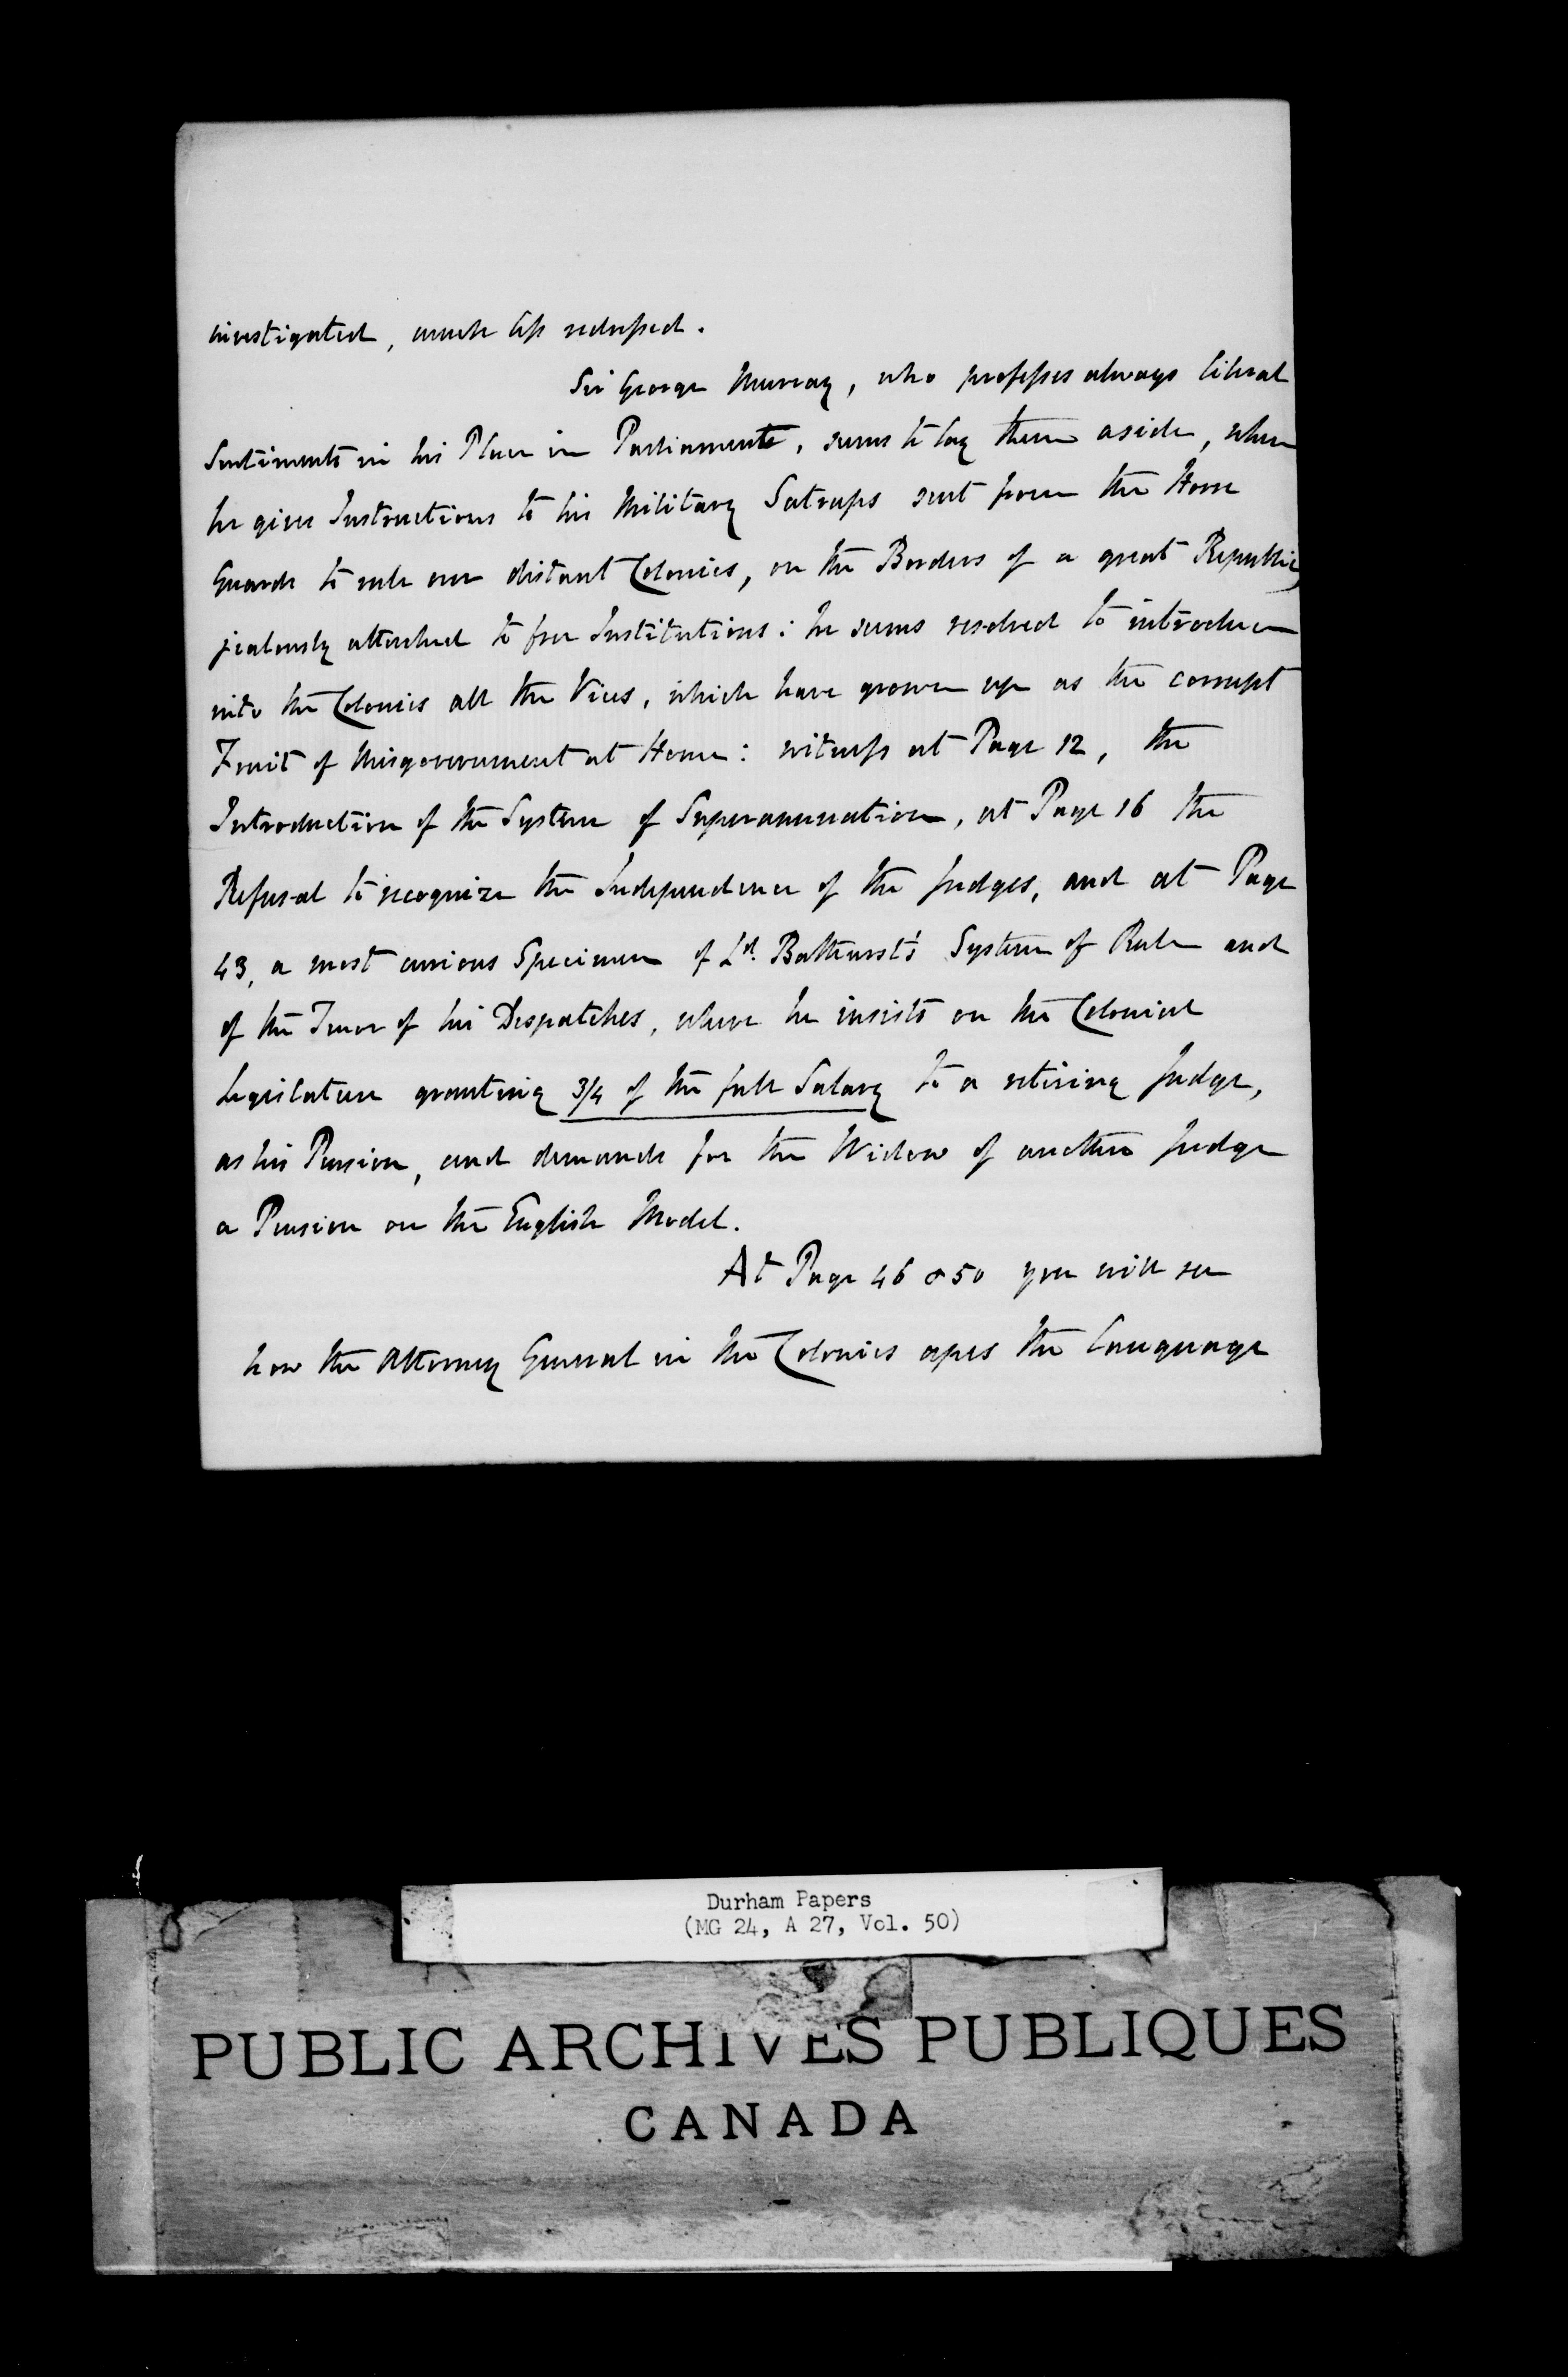 investigated, much less redressed.
Sir George Murray, who professes always liberal
Sentiments in his Place in Parliament, seems to lay them aside, when
he gives Instructions to his Military Satraps sent from the Horse
Guards to rule our distant Colonies, on the Borders of a great Republic,
jealously attached to free Institutions: he seems resolved to introduce
into the Colonies all the Vices, which have grown up as the corrupt
Fruit of Misgovernment at Home: witness at Page 12, the
Introduction of the System of Superannuation, at Page 16 the
Refusal to recognize the Independence of the Judges, and at Page
43, a most curious Specimen of Ld. Bathurst's System of Rule and
of the Tenor of his Despatches, where he insists on the Colonial
Legislature granting 3/4 of the full Salary to a retiring Judge,
as his Pension, and demands for the Widow of another Judge
a Pension on the English Model.
At Page 46 & 50 you will see
how the Attorney General in the Colonies apes the Language
Durham Papers
(MG 24, A 27, Vol. 50)
PUBLIC ARCHIVES PUBLIQUES
CANADA